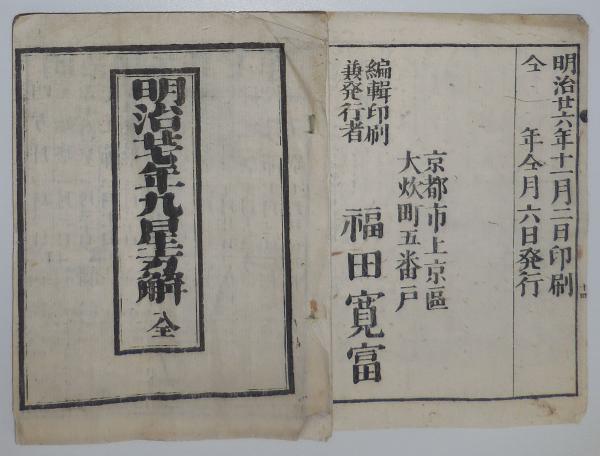 明治廿六年十一月二日印刷
仝年仝月六日発行
京都市上京區
大炊町五番戸
編輯印刷
兼発行者
福田寛富
明治廿七年九星方解
全